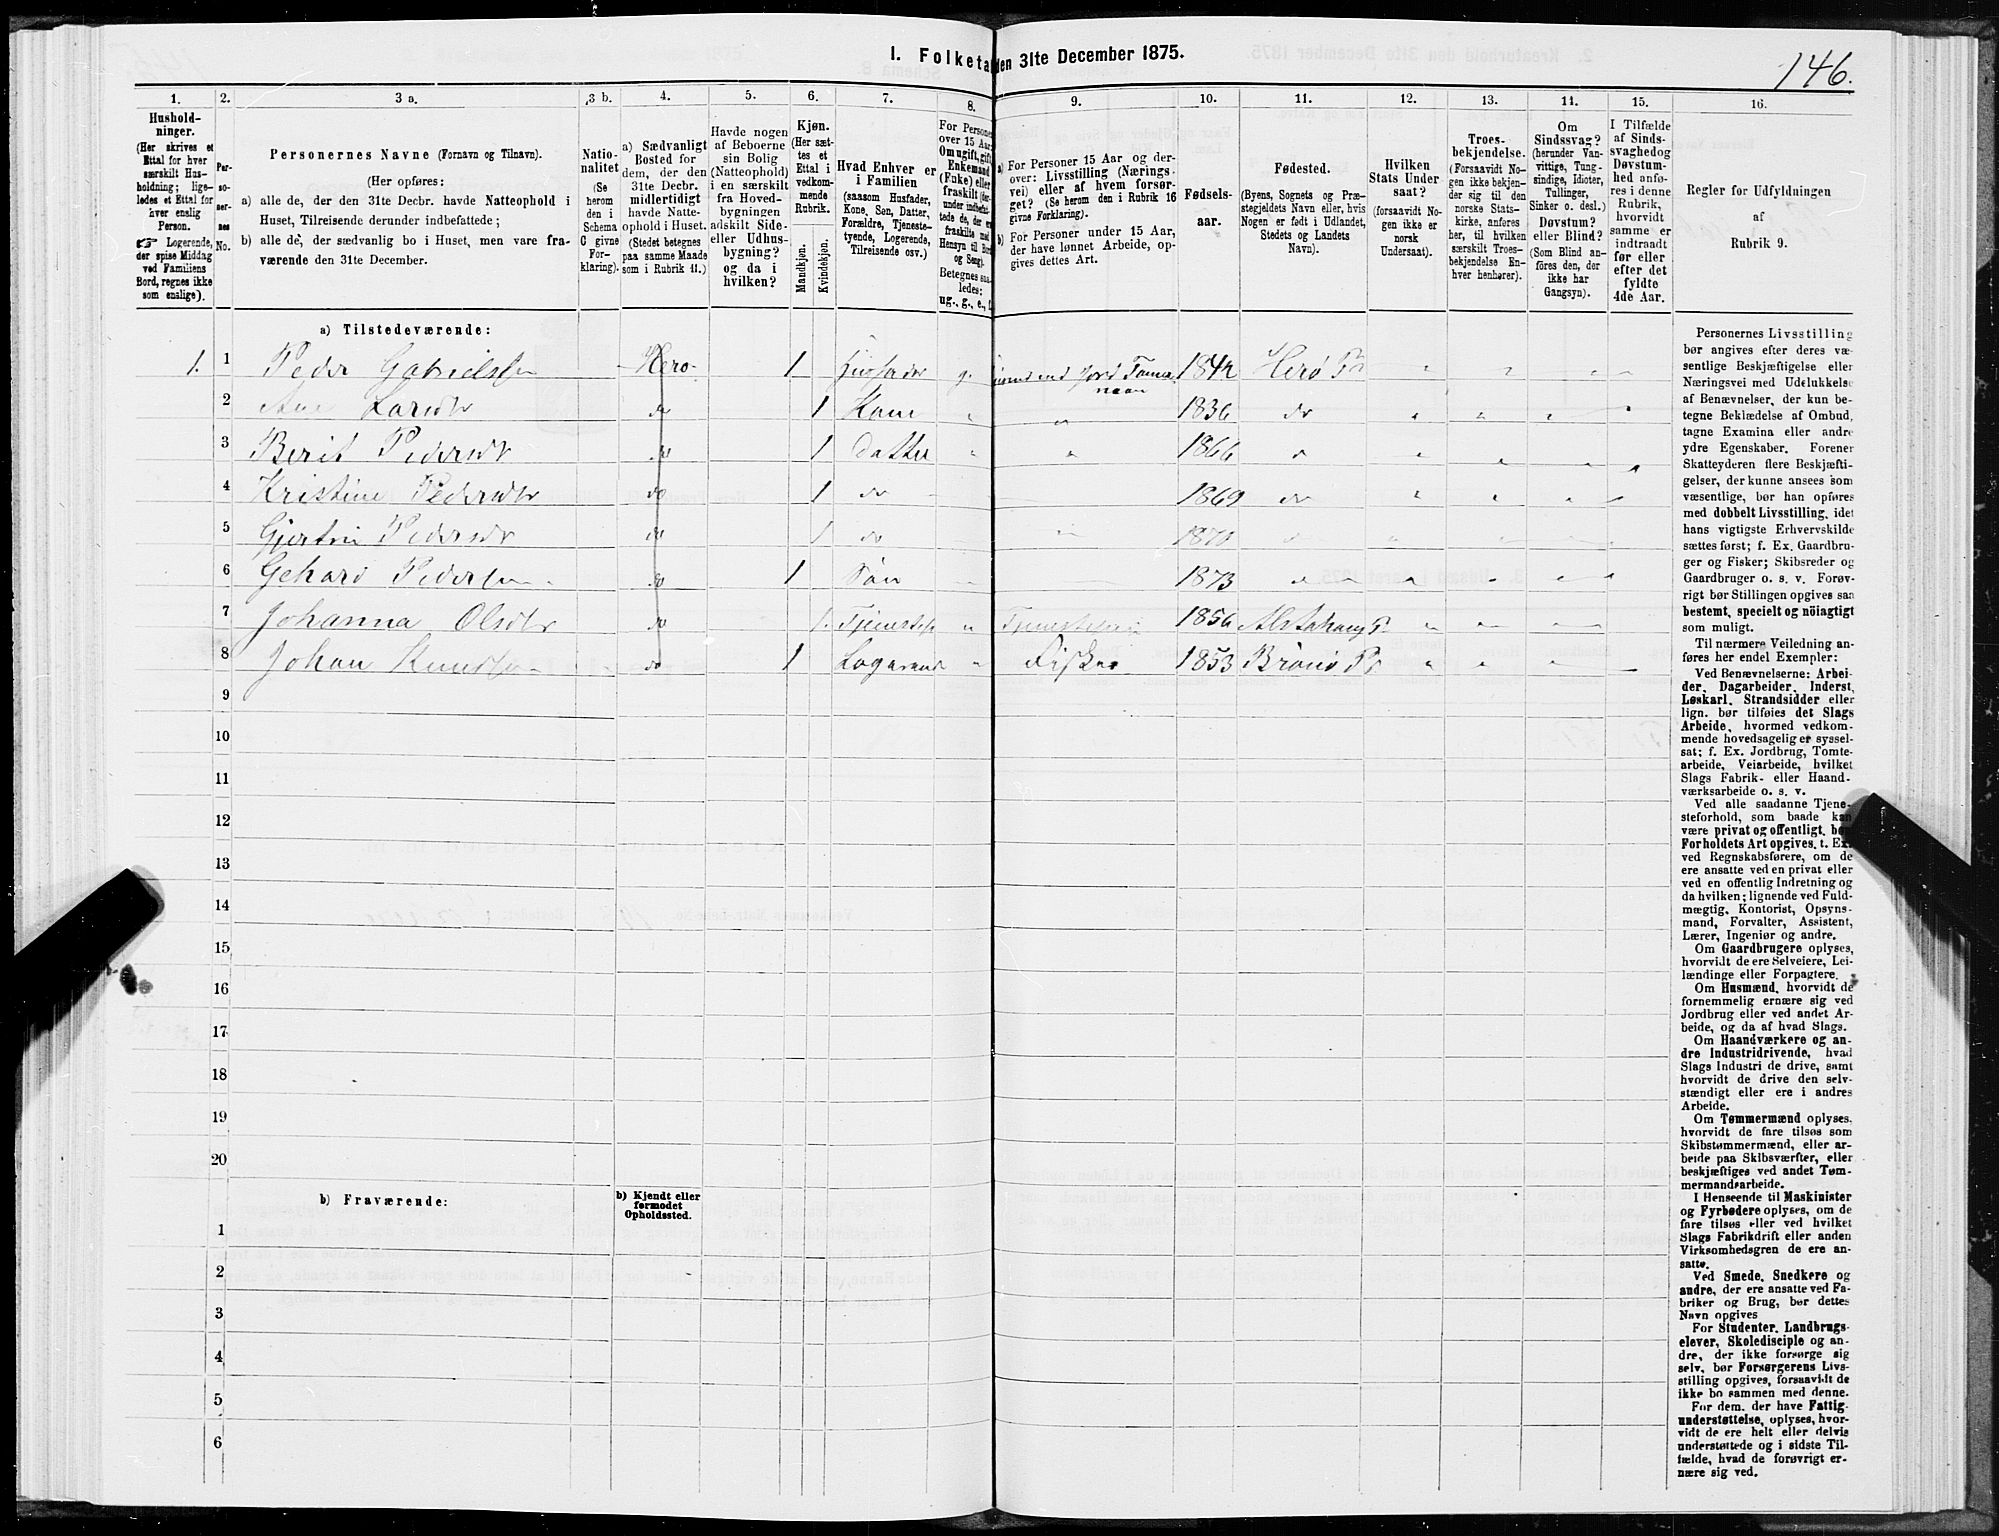 I. Folketa den 31te December 1875.
146.
1.
2.
3 a.
3 b.
4.
5.
6.
7.
8.
9.
10.
11.
12.
13.
14.
15.
16.
Hushold-
ninger.
(Her skrives et
Ettal for hver
særskilt Hus-
holdning; lige-
ledes et Ettal for
hver enslig
Person.
☞ Logerende,
der spise Middag
ved Familiens
Bord, regnes ikke
som enslige).
Per-
so-
ner-
nes
No.
Personernes Navne (Fornavn og Tilnavn).
(Her opføres:
a) alle de, der den 31te Decbr. havde Natteophold i
Huset, Tilreisende derunder indbefattede;
b) alle de, der sædvanlig bo i Huset, men vare fra-
værende den 31te December.
Natio-
nalitet
(Se
herom
den i
Schema
C givne
For-
klaring).
a) Sædvanligt
Bosted for
dem, der den
31te Decbr.
midlertidigt
havde Natte-
ophold i Huset.
(Stedet betegnes
paa samme Maade
som i Rubrik 11.)
Havde nogen
af Beboerne
sin Bolig
(Natteophold)
i en særskilt
fra Hoved-
bygningen
adskilt Side-
eller Udhus-
bygning?
og da i
hvilken?
Kjøn.
(Her sæt-
tes et
Ettal i
vedkom-
mende
Rubrik.
Mandkjøn.
Kvindekjøn.
Hvad Enhver er
i Familien
(saasom Husfader,
Kone, Søn, Datter,
Forældre, Tjeneste-
tyende, Logerende,
Tilreisende osv.)
For Persone
over 15 Aar
Om ugift, gift
Enkemand
(Enke) eller
fraskilt
Hensyn til Bord
og Seng).
Betegnes saa-
ledes:
ug., g., e., f.
a) For Personer 15 Aar og der-
over: Livsstilling (Nærings-
vei) eller af hvem forsør-
get? (Se herom den i Rubrik 16
givne Forklaring).
b) For Personer under 15 Aar,
der have lønnet Arbeide, op-
gives dettes Art.
Fødsels-
aar.
Fødested.
(Byens, Sognets og Præ-
stegjeldets Navn eller, hvis
Nogen er født i Udlandet,
Stedets og Landets
Navn).
Hvilken
Stats Under
saat?
(forsaavidt No-
gen ikke er
norsk
Undersaat).
Troes-
bekjendelse.
(Forsaavidt No-
gen ikke bekjen-
der sig til den
norske Stats-
kirke, anføres
her, til hvilken
særskilt Troes-
bekjendelse En-
hver henhører).
Om
Sindssvag?
(herunder Van-
vittige, Tung-
sindige, Idioter,
Tullinger,
Sinker o. desl.)
Døvstum?
eller Blind?
(Som Blind an-
føres den, der
ikke har
Gangsyn).
I Tilfælde
af Sinds-
svaghedog
Døvstum-
hed anfø-
res i denne
Rubrik,
hvorvidt
samme er
indtraadt
før eller
efter det
fyldte
4de Aar.
Regler for Udfyldningen
af
Rubrik 9.
a) Tilstedeværende:
1. 1 Peder Gabrielsen Herø 1 Husfader g. Jord 1842 Herø Pr
2 Ane Larsdtr do 1 Kone " " 1836 do
3 Berit Pedersdtr do 1 Datter " " 1866
4 Kristine Pedersdtr do 1 do 1869 do
5 Gjertrin Pedersdtr do 1 do 1870
6 Gehard Pedersen do 1 Søn 1873
7 Johanna Olsdtr do 1. 1856 Alstahaug Pr
8 Johan Knudsen do 1 Logerende " Fisker 1853 Brønø Pr
9
10
11
12
13
14
15
16
17
18
19
20
b) Fraværende:
b) Kjendt eller
formodet
Opholdssted.
1
2
3
4
5
6
Personernes Livsstilling
bør angives efter deres væ-
sentlige Beskjæftigelse eller
Næringsvei med Udelukkelse
af Benævnelser, der kun be-
tegne Beklædelse af Ombud,
tagne Examina eller andre
ydre Egenskaber. Forener
Skatteyderen flere Beskjæfti-
gelser, der kunne ansees som
væsentlige, bør han opføres
med dobbelt Livsstilling, idet
hans vigtigste Erhvervskilde
sættes først; f. Ex. Gaardbru-
ger og Fisker; Skibsreder og
Gaardbruger o. s. v. Forøv-
rigt bør Stillingen opgives saa
bestemt, specielt og nöiagtigt
som muligt.
Til nærmere Veiledning an-
føres her endel Exempler:
Ved Benævnelserne: Arbei-
der, Dagarbeider, Inderst,
Løskarl, Strandsidder eller
lign. bør tilføies det Slags
Arbeide, hvormed vedkom-
mende hovedsagelig er syssel-
sat; f. Ex. Jordbrug, Tomte-
arbeide, Veiarbeide, hvilket
Slags Fabrik- eller Haand-
værksarbeide o. s. v.
Ved alle saadanne Tjene-
steforhold, som baade kan
være privat og offentligt, bør
Forholdets Art opgives, t. Ex.
ved Regnskabsførere, om de
ere ansatte ved en privat eller
ved en offentlig Indretning og
da hvilken; lignende ved Fuld-
mægtig, Kontorist, Opsyns-
mand, Forvalter, Assistent,
Lærer, Ingeniør og andre.
Om Gaardbrugere oplyses,
hvorvidt de ere Selveiere, Lei-
lændinge eller Forpagtere.
Om Husmænd, hvorvidt de
fornemmelig ernære sig ved
Jordbrug eller ved andet Ar-
beide, og da af hvad Slags.
Om Haandværkere og an-
dre Industridrivende, hvad
Slags Industri de drive, samt
hvorvidt de drive den selv-
stændigt eller ere i andres
Arbeide.
Om Tømmermænd oplyses,
hvorvidt de fare tilsøs som
Skibstømmermænd, eller ar-
beide paa Skibsværfter, eller
beskjæftiges ved andet Tøm-
mermandsarbeide.
I Henseende til Maskinister
og Fyrbødere oplyses, om de
fare tilsøs eller ved hvilket
Slags Fabrikdrift eller anden
Virksomhedsgren de ere an-
satte.
Ved Smede, Snedkere og
andre, der ere ansatte ved Fa-
briker og Brug, bør dettes
Navn opgives
For Studenter, Landbrugs-
elever, Skoledisciple og an-
dre, der ikke forsørge sig
selv, bør Forsørgerens Livs-
stilling opgives, forsaavidt de
ikke bo sammen med denne.
For dem, der have Fattig-
understøttelse, oplyses, hvor-
vidt de ere helt eller delvis
understøttede og i sidste Til-
fælde, hvad de forøvrigt er-
nære sig ved.